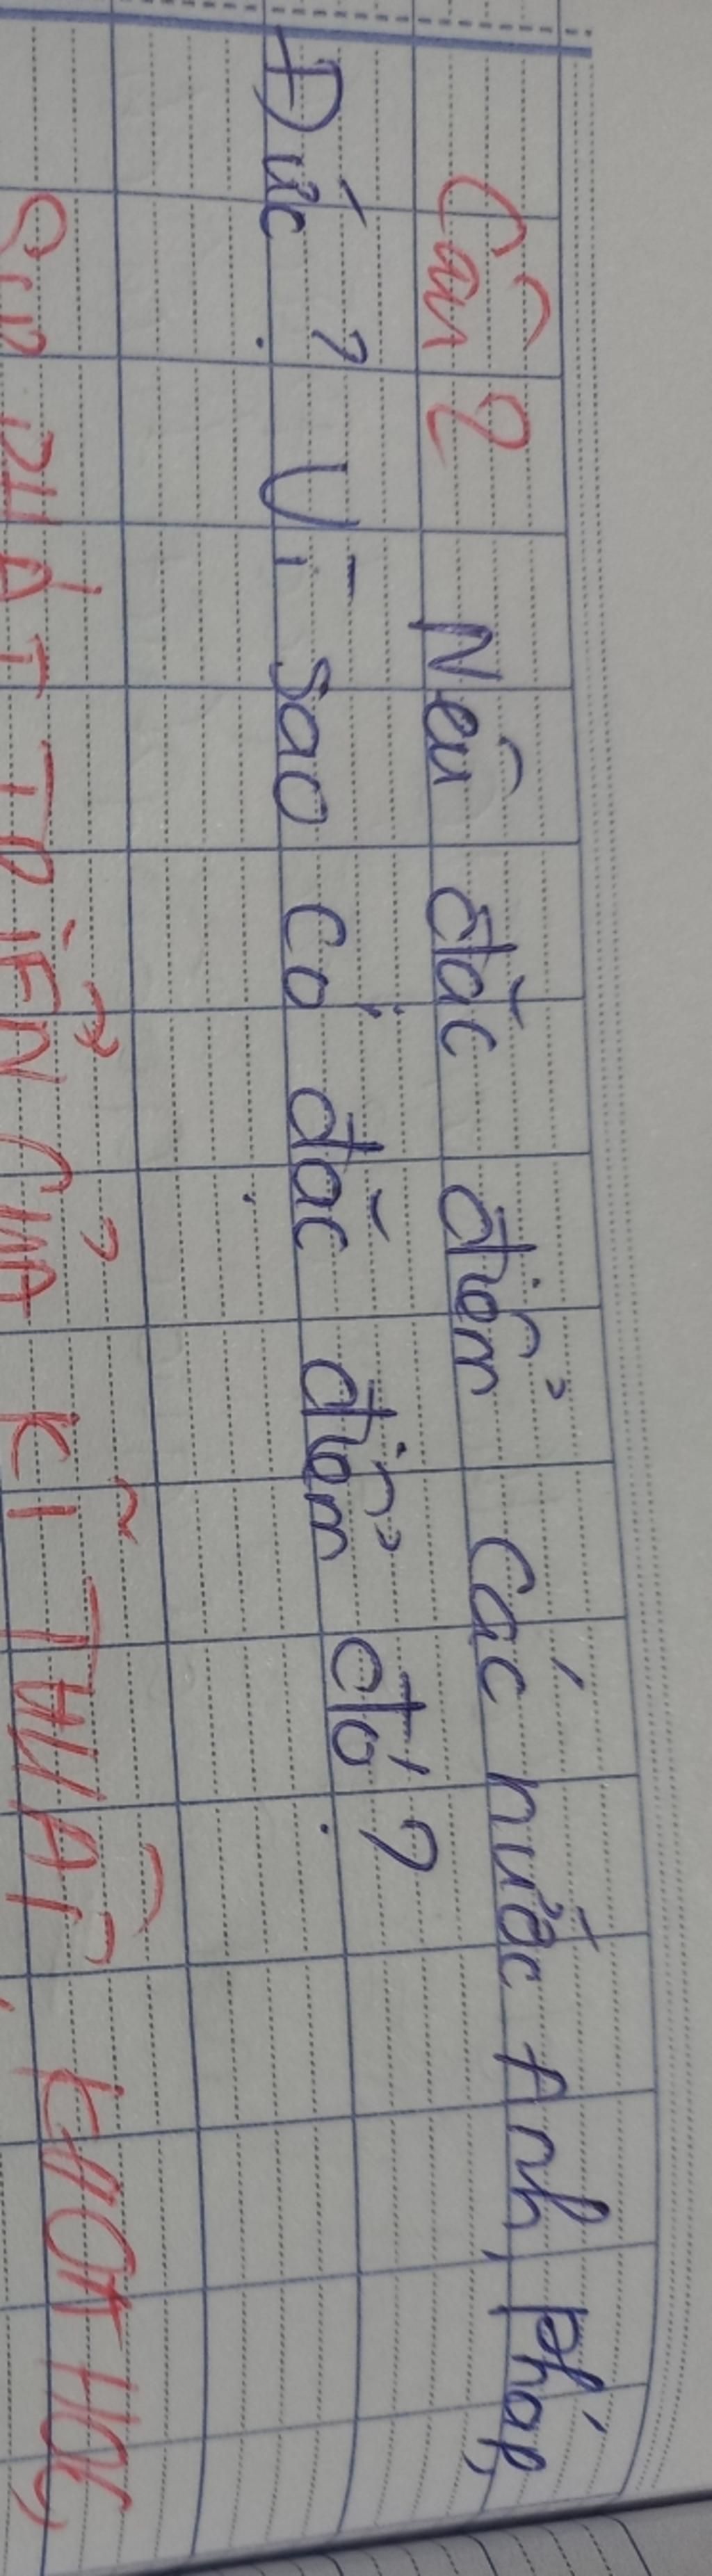 Câu 2 Nêu đặc điểm các nước Anh, Pháp,
Đức? Vì sao có đặc điểm đó?
SỰ PHÁT TRIỂN CỦA KĨ THUẬT, KHOA HỌC,